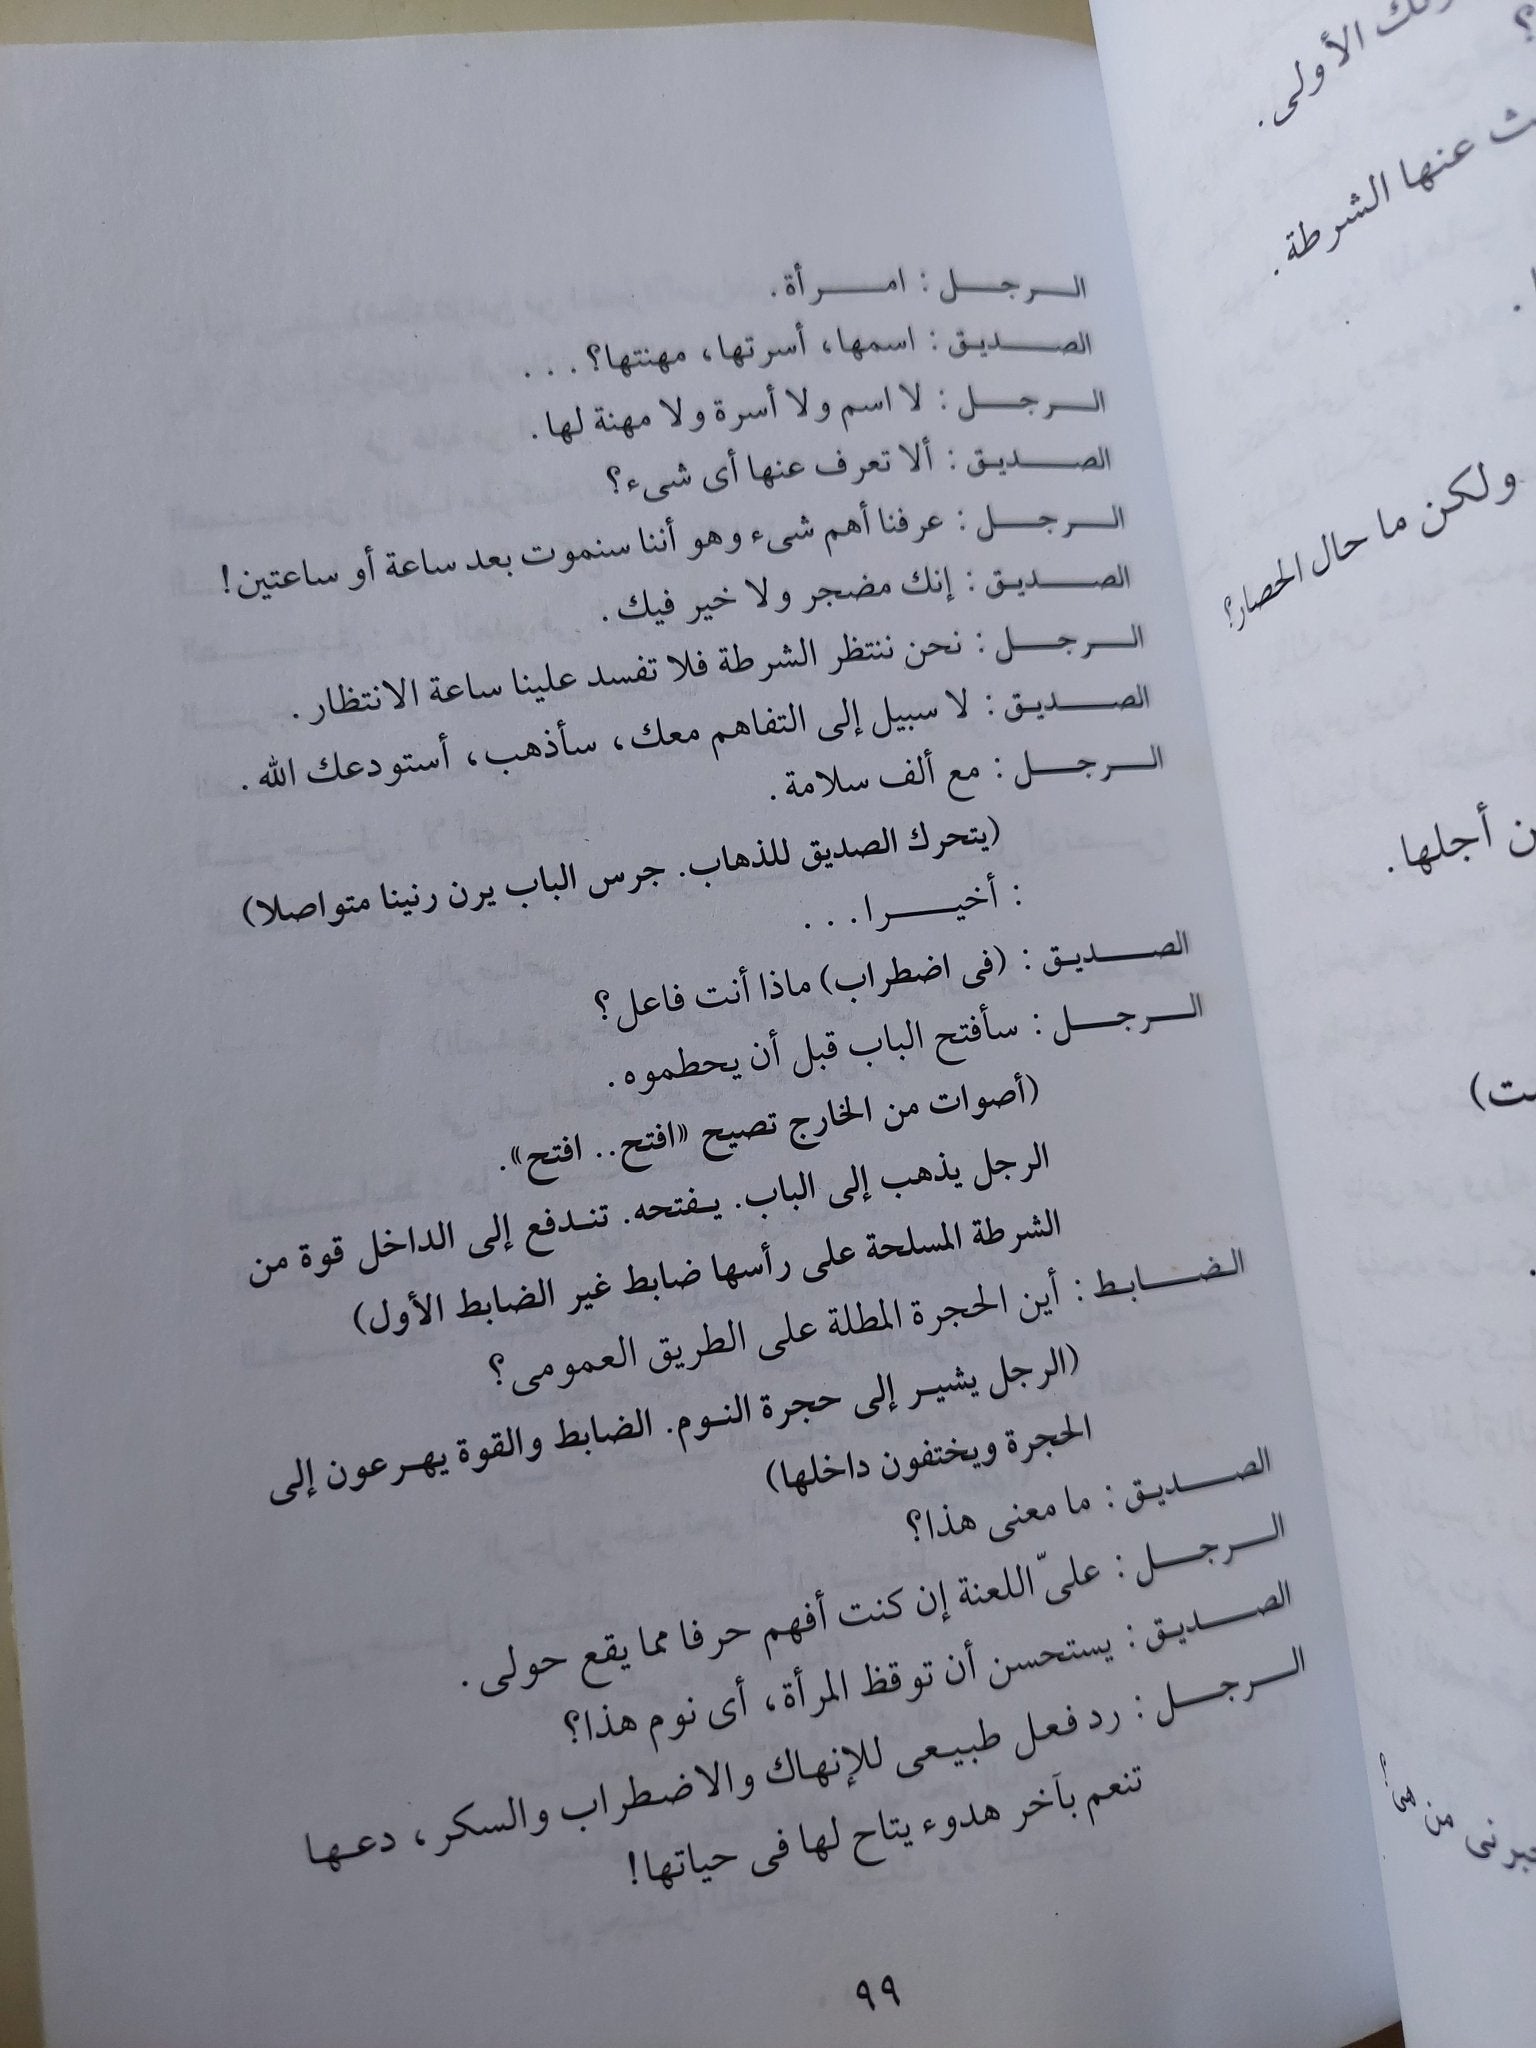 الرجل : امرأة.
الصديق : اسمها، أسرتها، مهنتها؟...
الرجل : لا اسم ولا أسرة ولا مهنة لها.
الصديق : ألا تعرف عنها أى شىء؟
الرجل : عرفنا أهم شىء وهو أننا سنموت بعد ساعة أو ساعتين!
الصديق : إنك مضجر ولا خير فيك.
الرجل : نحن ننتظر الشرطة فلا تفسد علينا ساعة الانتظار.
الصديق : لا سبيل إلى التفاهم معك، سأذهب، أستودعك الله.
الرجل : مع ألف سلامة.
(يتحرك الصديق للذهاب. جرس الباب يرن رنينا متواصلا)
: أخيرا...
الصديق : (فى اضطراب) ماذا أنت فاعل؟
الرجل : سأفتح الباب قبل أن يحطموه.
(أصوات من الخارج تصيح «افتح.. افتح».
الرجل يذهب إلى الباب. يفتحه. تندفع إلى الداخل قوة من
الشرطة المسلحة على رأسها ضابط غير الضابط الأول)
الضابط : أين الحجرة المطلة على الطريق العمومى؟
(الرجل يشير إلى حجرة النوم. الضابط والقوة يهرعون إلى
الحجرة ويختفون داخلها)
الصديق : ما معنى هذا؟
الرجل : علىّ اللعنة إن كنت أفهم حرفا مما يقع حولى.
الصديق : يستحسن أن توقظ المرأة، أى نوم هذا؟
الرجل : رد فعل طبيعى للإنهاك والاضطراب والسكر، دعها
تنعم بآخر هدوء يتاح لها فى حياتها!
٩٩
الأولى.
عنها الشرطة.
ولكن ما حال الحصار؟
أجلها.
من هى؟